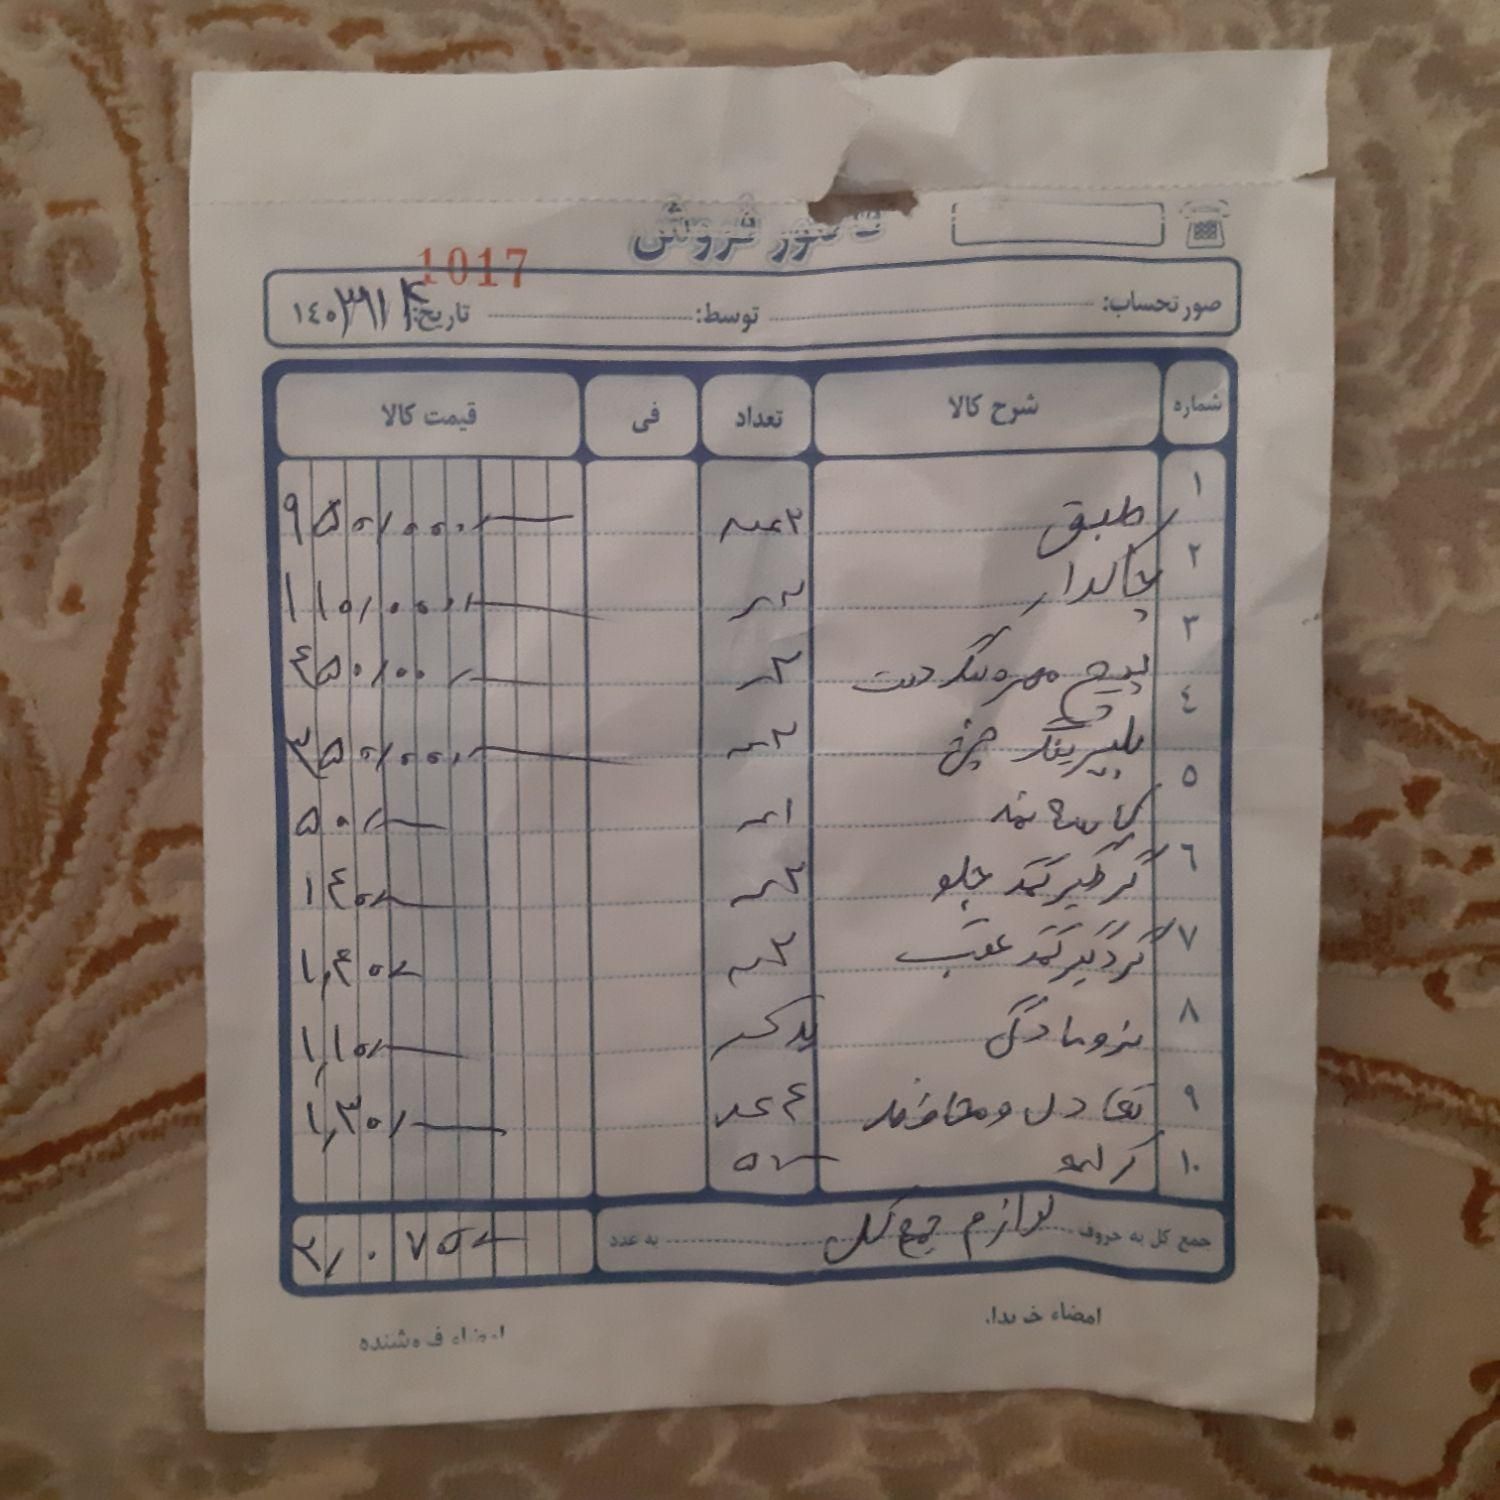 فاکتور فروش
1017
صورتحساب: توسط: تاریخ: ۱۴۰۳/۹/۴
شماره شرح کالا تعداد فی قیمت کالا
۱ طبق ۲ عدد ۹۵۰/۰۰۰/
۲ چالدار ۲ عدد ۱۱۰/۰۰۰/
۳ پیچ مهره دست ۲ عدد ۴۵۰/۰۰۰/
۴ بلبرینگ چرخ ۲ عدد ۳۵۰/۰۰۰/
۵ کاسه نمد ۱ عدد ۵۰/
۶ گردگیر کمک جلو ۲ عدد ۱۴۰/
۷ گردگیر کمک عقب ۲ عدد ۱,۴۰/
۸ نرومادگی ۱,۱۰/
۹ تعادل و ۴ عدد ۱,۳۰/
۱۰ ۵
جمع کل به حروف لوازم جمع کل به عدد ۲/۰۷۵۰/
امضاء خریدار امضاء فروشنده